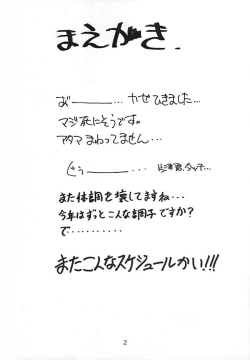 まえがき.
お———… かぜひきました…
マジ死にそうです。
アタマ まわってません…
また体調を壊してますね…
今年はずっとこんな調子ですか?
で…………
またこんなスケジュールかい!!!
2